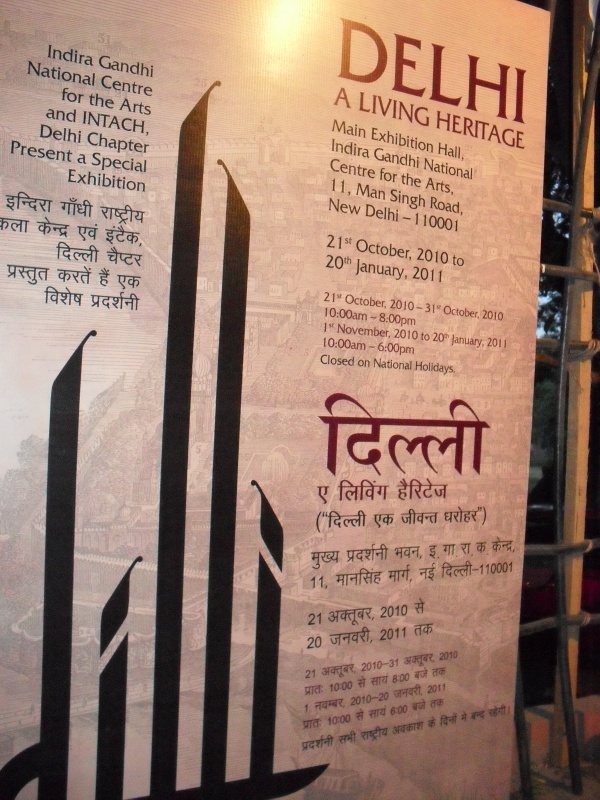 Indira Gandhi
National Centre
for the Arts
and INTACH,
Delhi Chapter
Present a Special
Exhibition
इन्दिरा गाँधी राष्ट्रीय
कला केन्द्र एवं इंटैक,
दिल्ली चैप्टर
प्रस्तुत करतें हैं एक
विशेष प्रदर्शनी
DELHI
A LIVING HERITAGE
Main Exhibition Hall,
Indira Gandhi National
Centre for the Arts,
11, Man Singh Road,
New Delhi – 110001
21st October, 2010 to
20th January, 2011
21st October, 2010 – 31st October, 2010
10:00am – 8:00pm
1st November, 2010 to 20th January, 2011
10:00am – 6:00pm
Closed on National Holidays.
दिल्ली
ए लिविंग हैरिटेज
("दिल्ली एक जीवन्त धरोहर")
मुख्य प्रदर्शनी भवन, इ.गा.रा.क.केन्द्र,
11, मानसिंह मार्ग, नई दिल्ली-110001
21 अक्तूबर, 2010 से
20 जनवरी, 2011 तक
21 अक्तूबर, 2010–31 अक्तूबर, 2010
प्रातः 10:00 से सायं 8:00 बजे तक
1 नवम्बर, 2010–20 जनवरी, 2011
प्रातः 10:00 से सायं 6:00 बजे तक
प्रदर्शनी सभी राष्ट्रीय अवकाश के दिनों मे बन्द रहेगी।